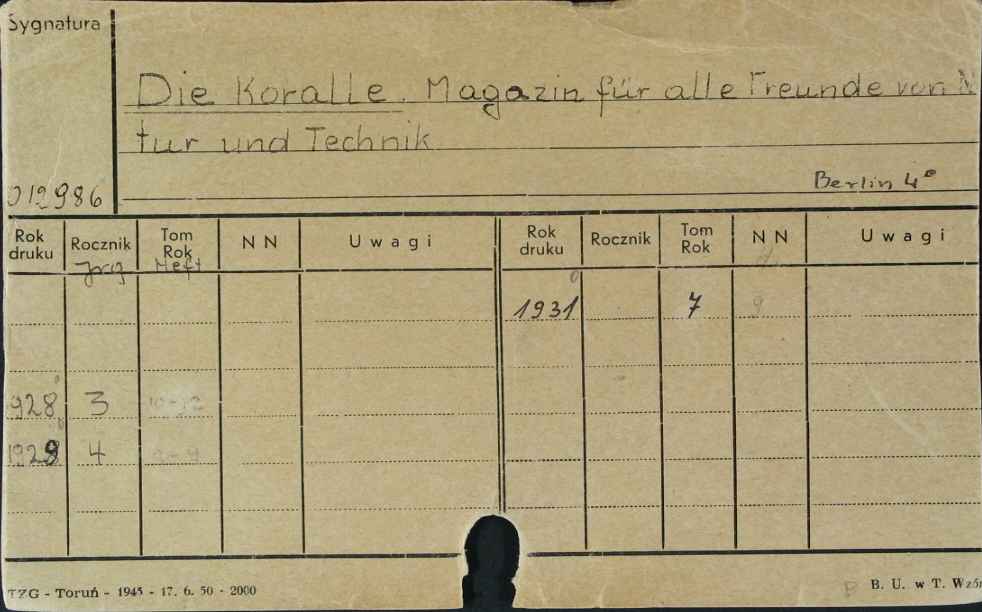 Sygnatura
Die Koralle. Magazin für alle Freunde von N
tur und Technik
012986
Berlin 4°
Rok druku Rocznik Tom Rok N N Uwagi Rok druku Rocznik Tom Rok N N Uwagi
Jorg Heft
1931 7 9
928 3 10-12
1929 4
TZG - Toruń - 1945 - 17. 6. 50 - 2000
B. U. w T. Wzór